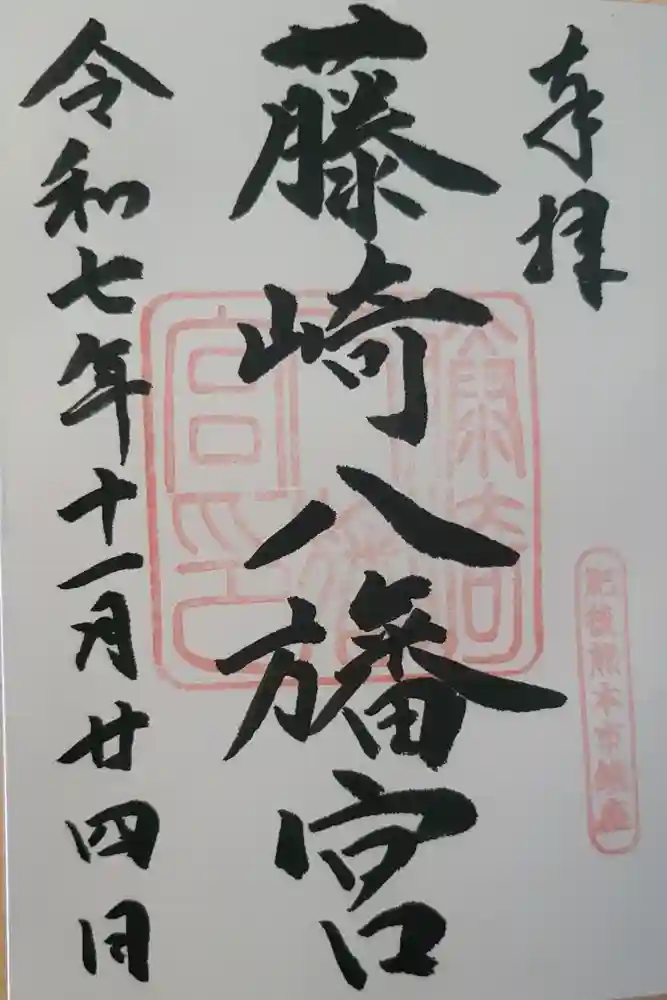 奉拝
肥後熊本市鎮座
藤崎八旛宮
令和七年十一月廿四日